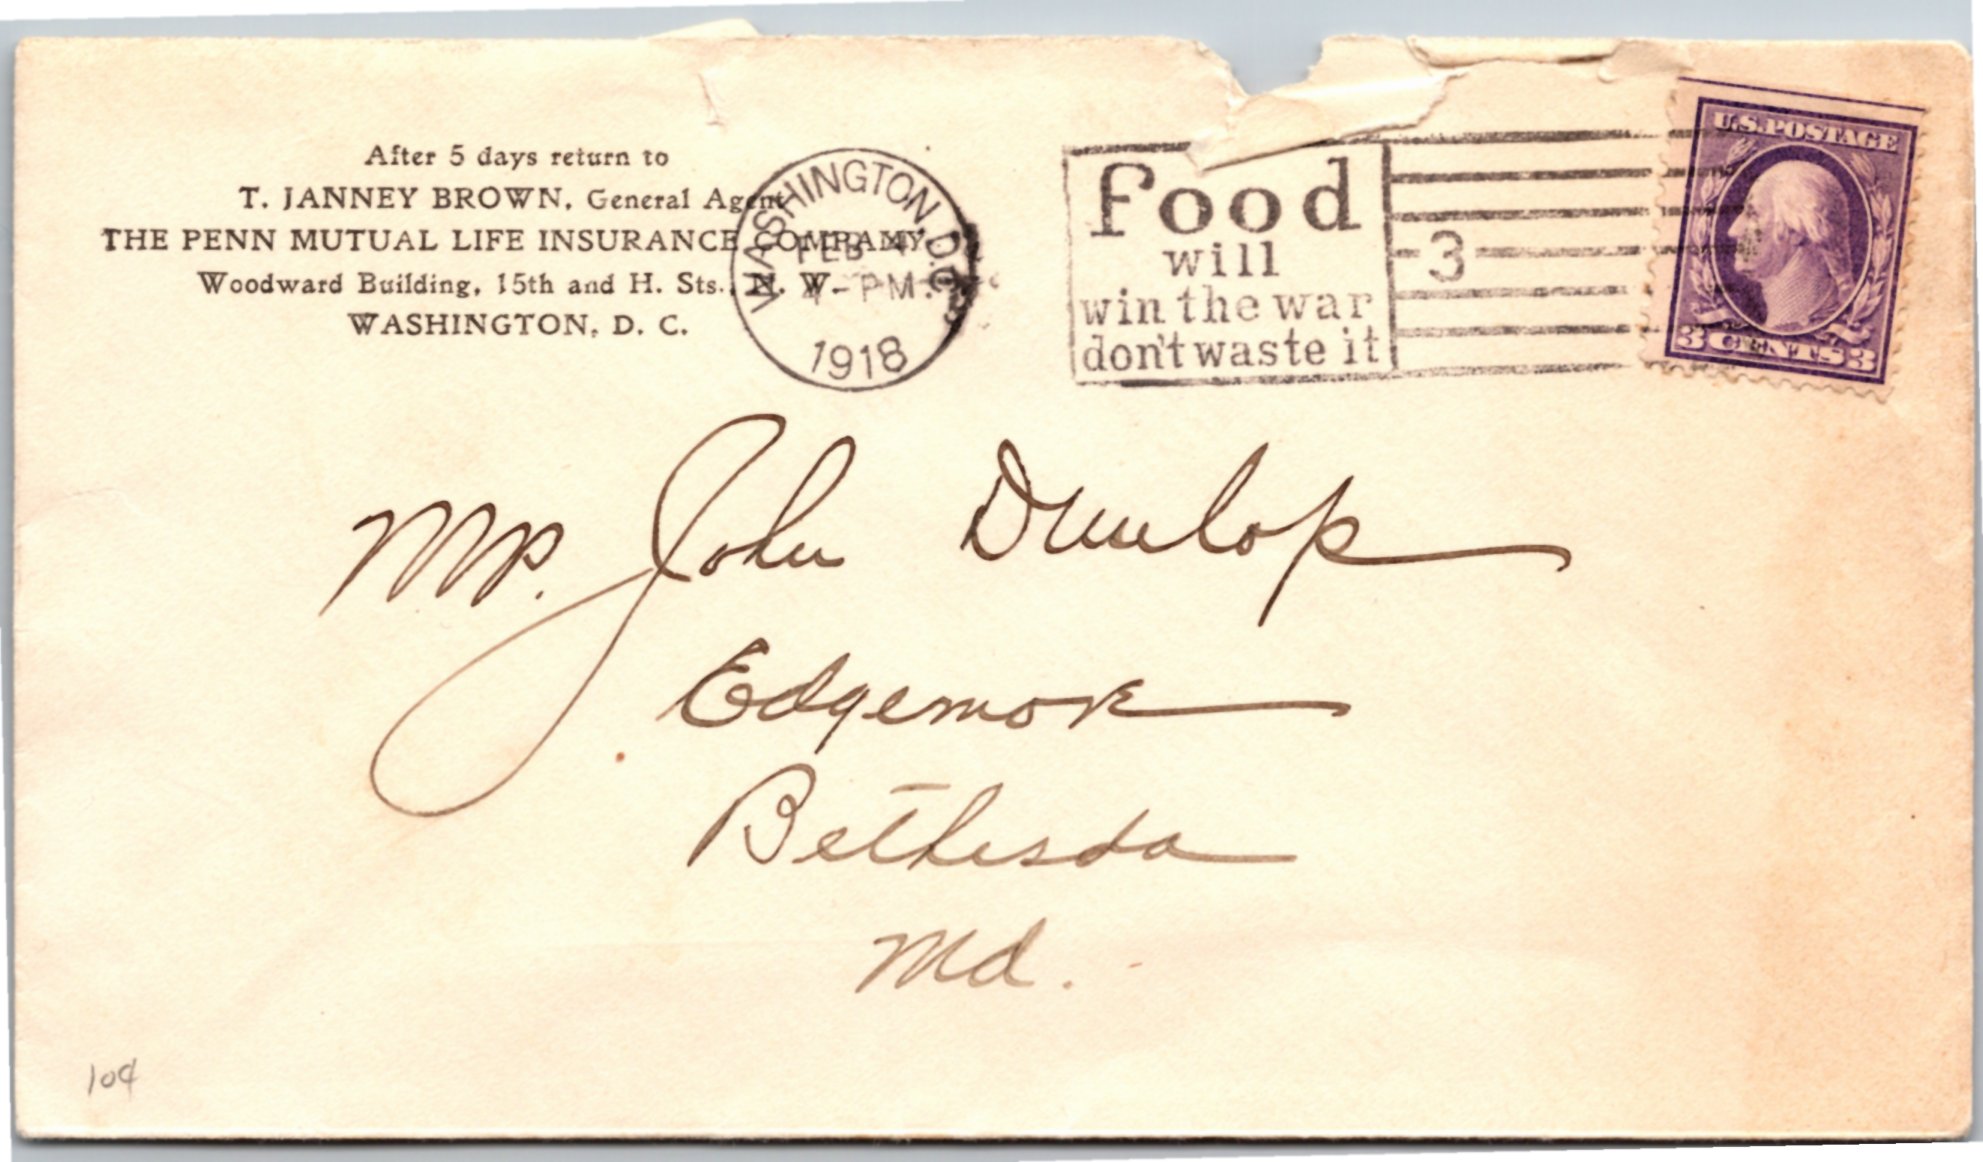 After 5 days return to
T. JANNEY BROWN, General Agent
THE PENN MUTUAL LIFE INSURANCE COMPANY,
Woodward Building, 15th and H. Sts., N. W.
WASHINGTON, D. C.
WASHINGTON, D.C.
FEB
PM
1918
food
will
win the war
don't waste it
3
U.S. POSTAGE
3 CENTS 3
Mr. John Dunlop
Edgemore
Bethesda
Md.
10¢